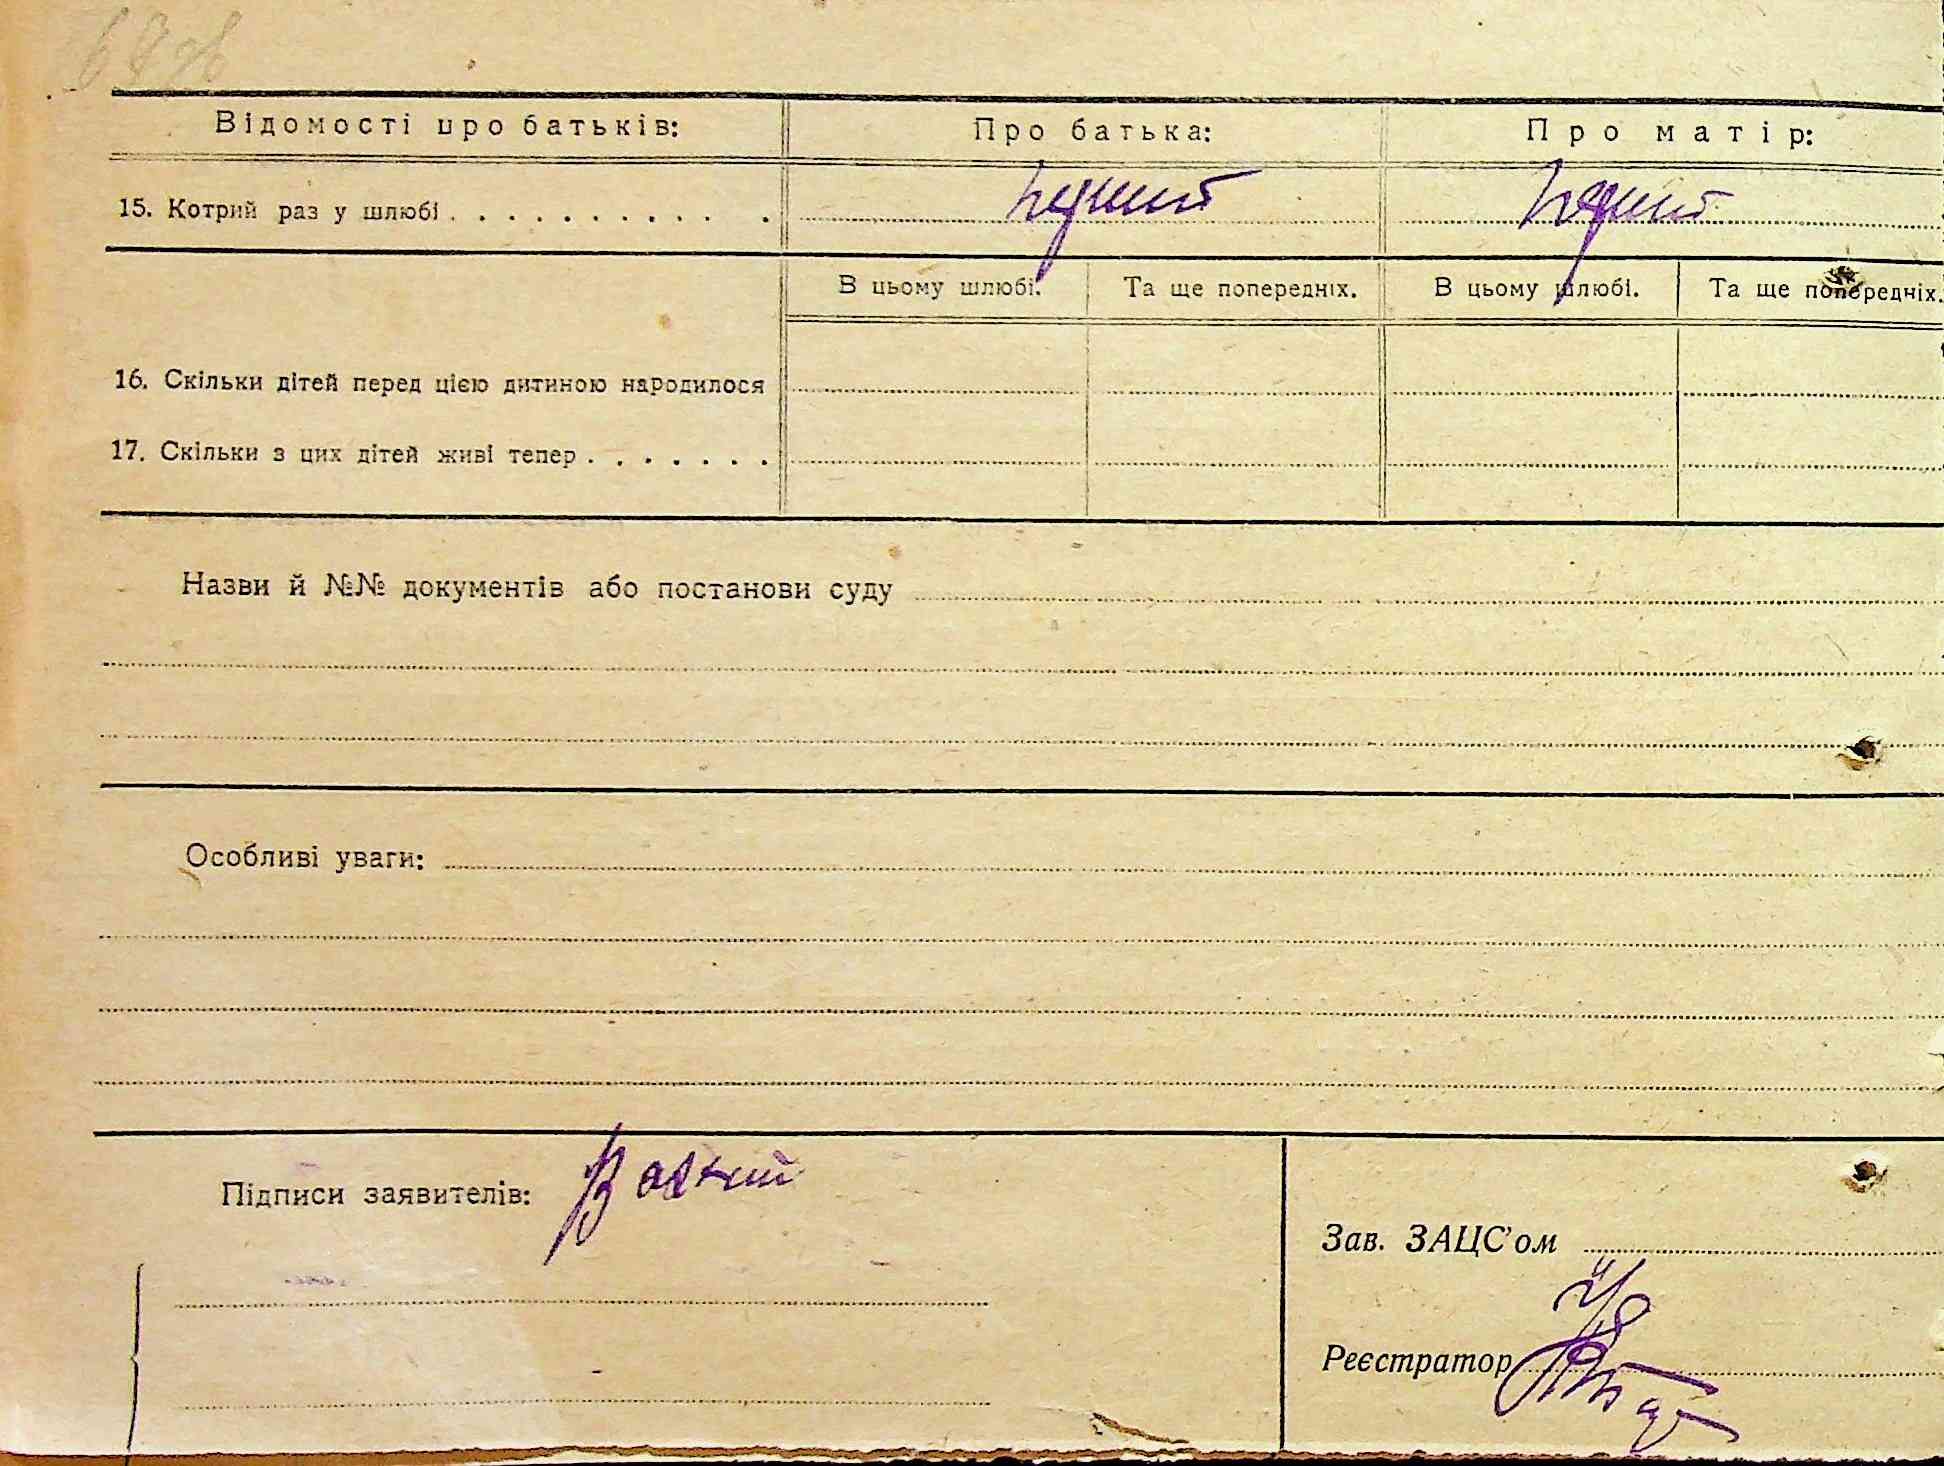 Відомості про батьків: Про батька: Про матір:
15. Котрий раз у шлюбі . . . . . . . . . . перший перший
В цьому шлюбі. Та ще попередніх. В цьому шлюбі. Та ще попередніх.
16. Скільки дітей перед цією дитиною народилося
17. Скільки з цих дітей живі тепер . . . . . . .
Назви й №№ документів або постанови суду
Особливі уваги:
Підписи заявителів:
Зав. ЗАЦС'ом
Реєстратор